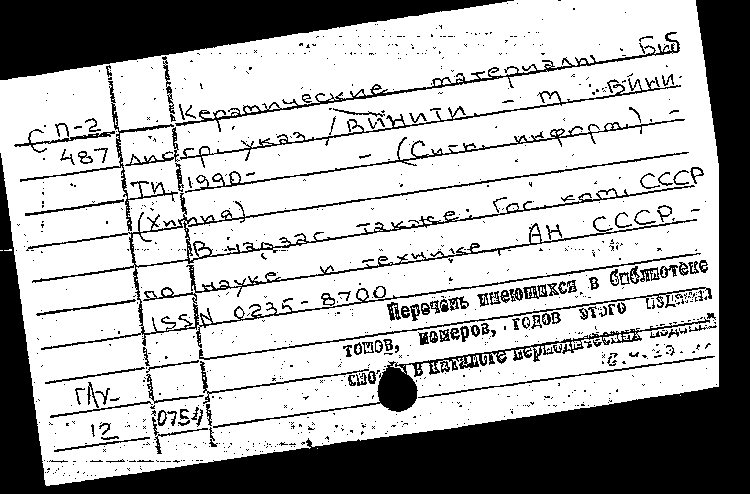 Керамические материалы : Биб
СП-2
487
лиогр. указ. / ВИНИТИ. - М. : ВИНИ
ТИ, 1990- - (Сигн. информ.). -
(Химия)
В надзаг. также: Гос. ком. СССР
по науке и технике, АН СССР. -
ISSN 0235-8700
Перечень имеющихся в библиотеке
томов, номеров, годов этого издания
в каталоге периодических изданий
12
0754